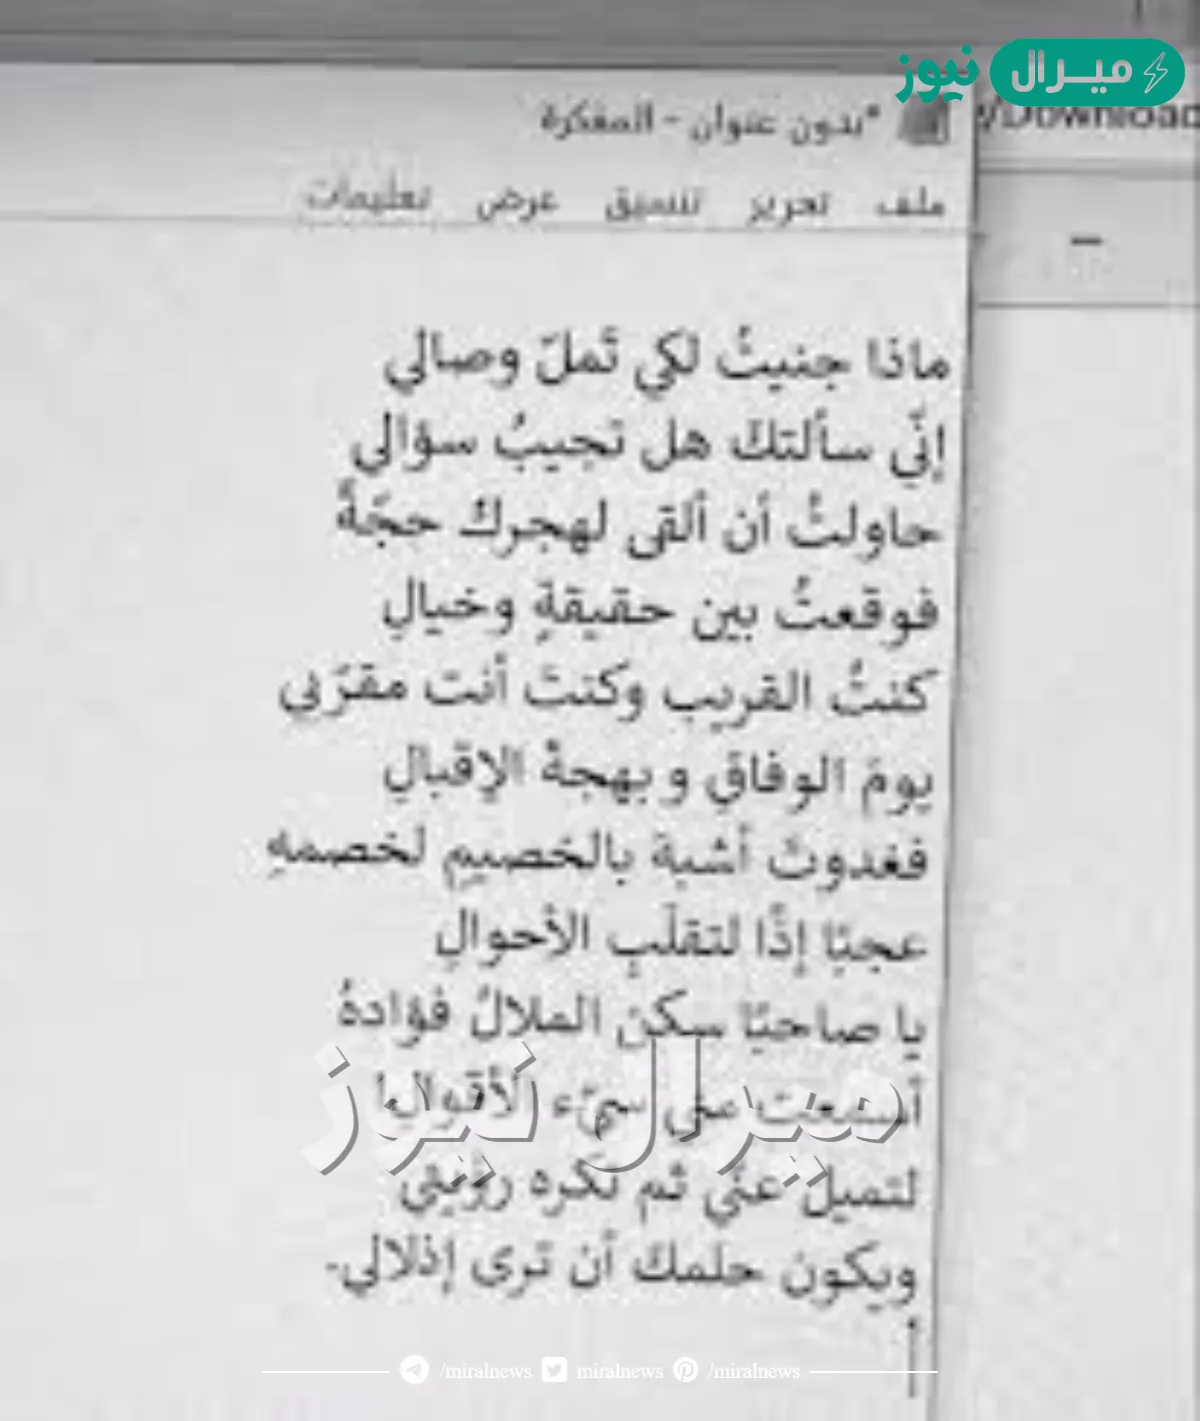 ميرال نيوز
/Download
*بدون عنوان - المفكرة
ملف تحرير تنسيق عرض تعليمات
ماذا جنيتُ لكي تَملّ وصالي
إنّي سألتكَ هل تجيبُ سؤالي
حاولتُ أن ألقى لهجركَ حجّةً
فوقعتُ بين حقيقةٍ وخيالِ
كنتُ القريب وكنتَ أنت مقرّبي
يومَ الوفاقِ و بهجةُ الإقبالِ
فغدوتَ أشبهَ بالخصيمِ لخصمهِ
عجبًا إذًا لتقلّبِ الأحوالِ
يا صاحبًا سكن الملالُ فؤادهُ
أسمعت عني سيّء الأقوالِ!
لتميلَ عنّي ثم تكره رؤيتي
ويكون حلمك أن ترى إذلالي.
أ
ميرال نيوز
/miralnews miralnews /miralnews